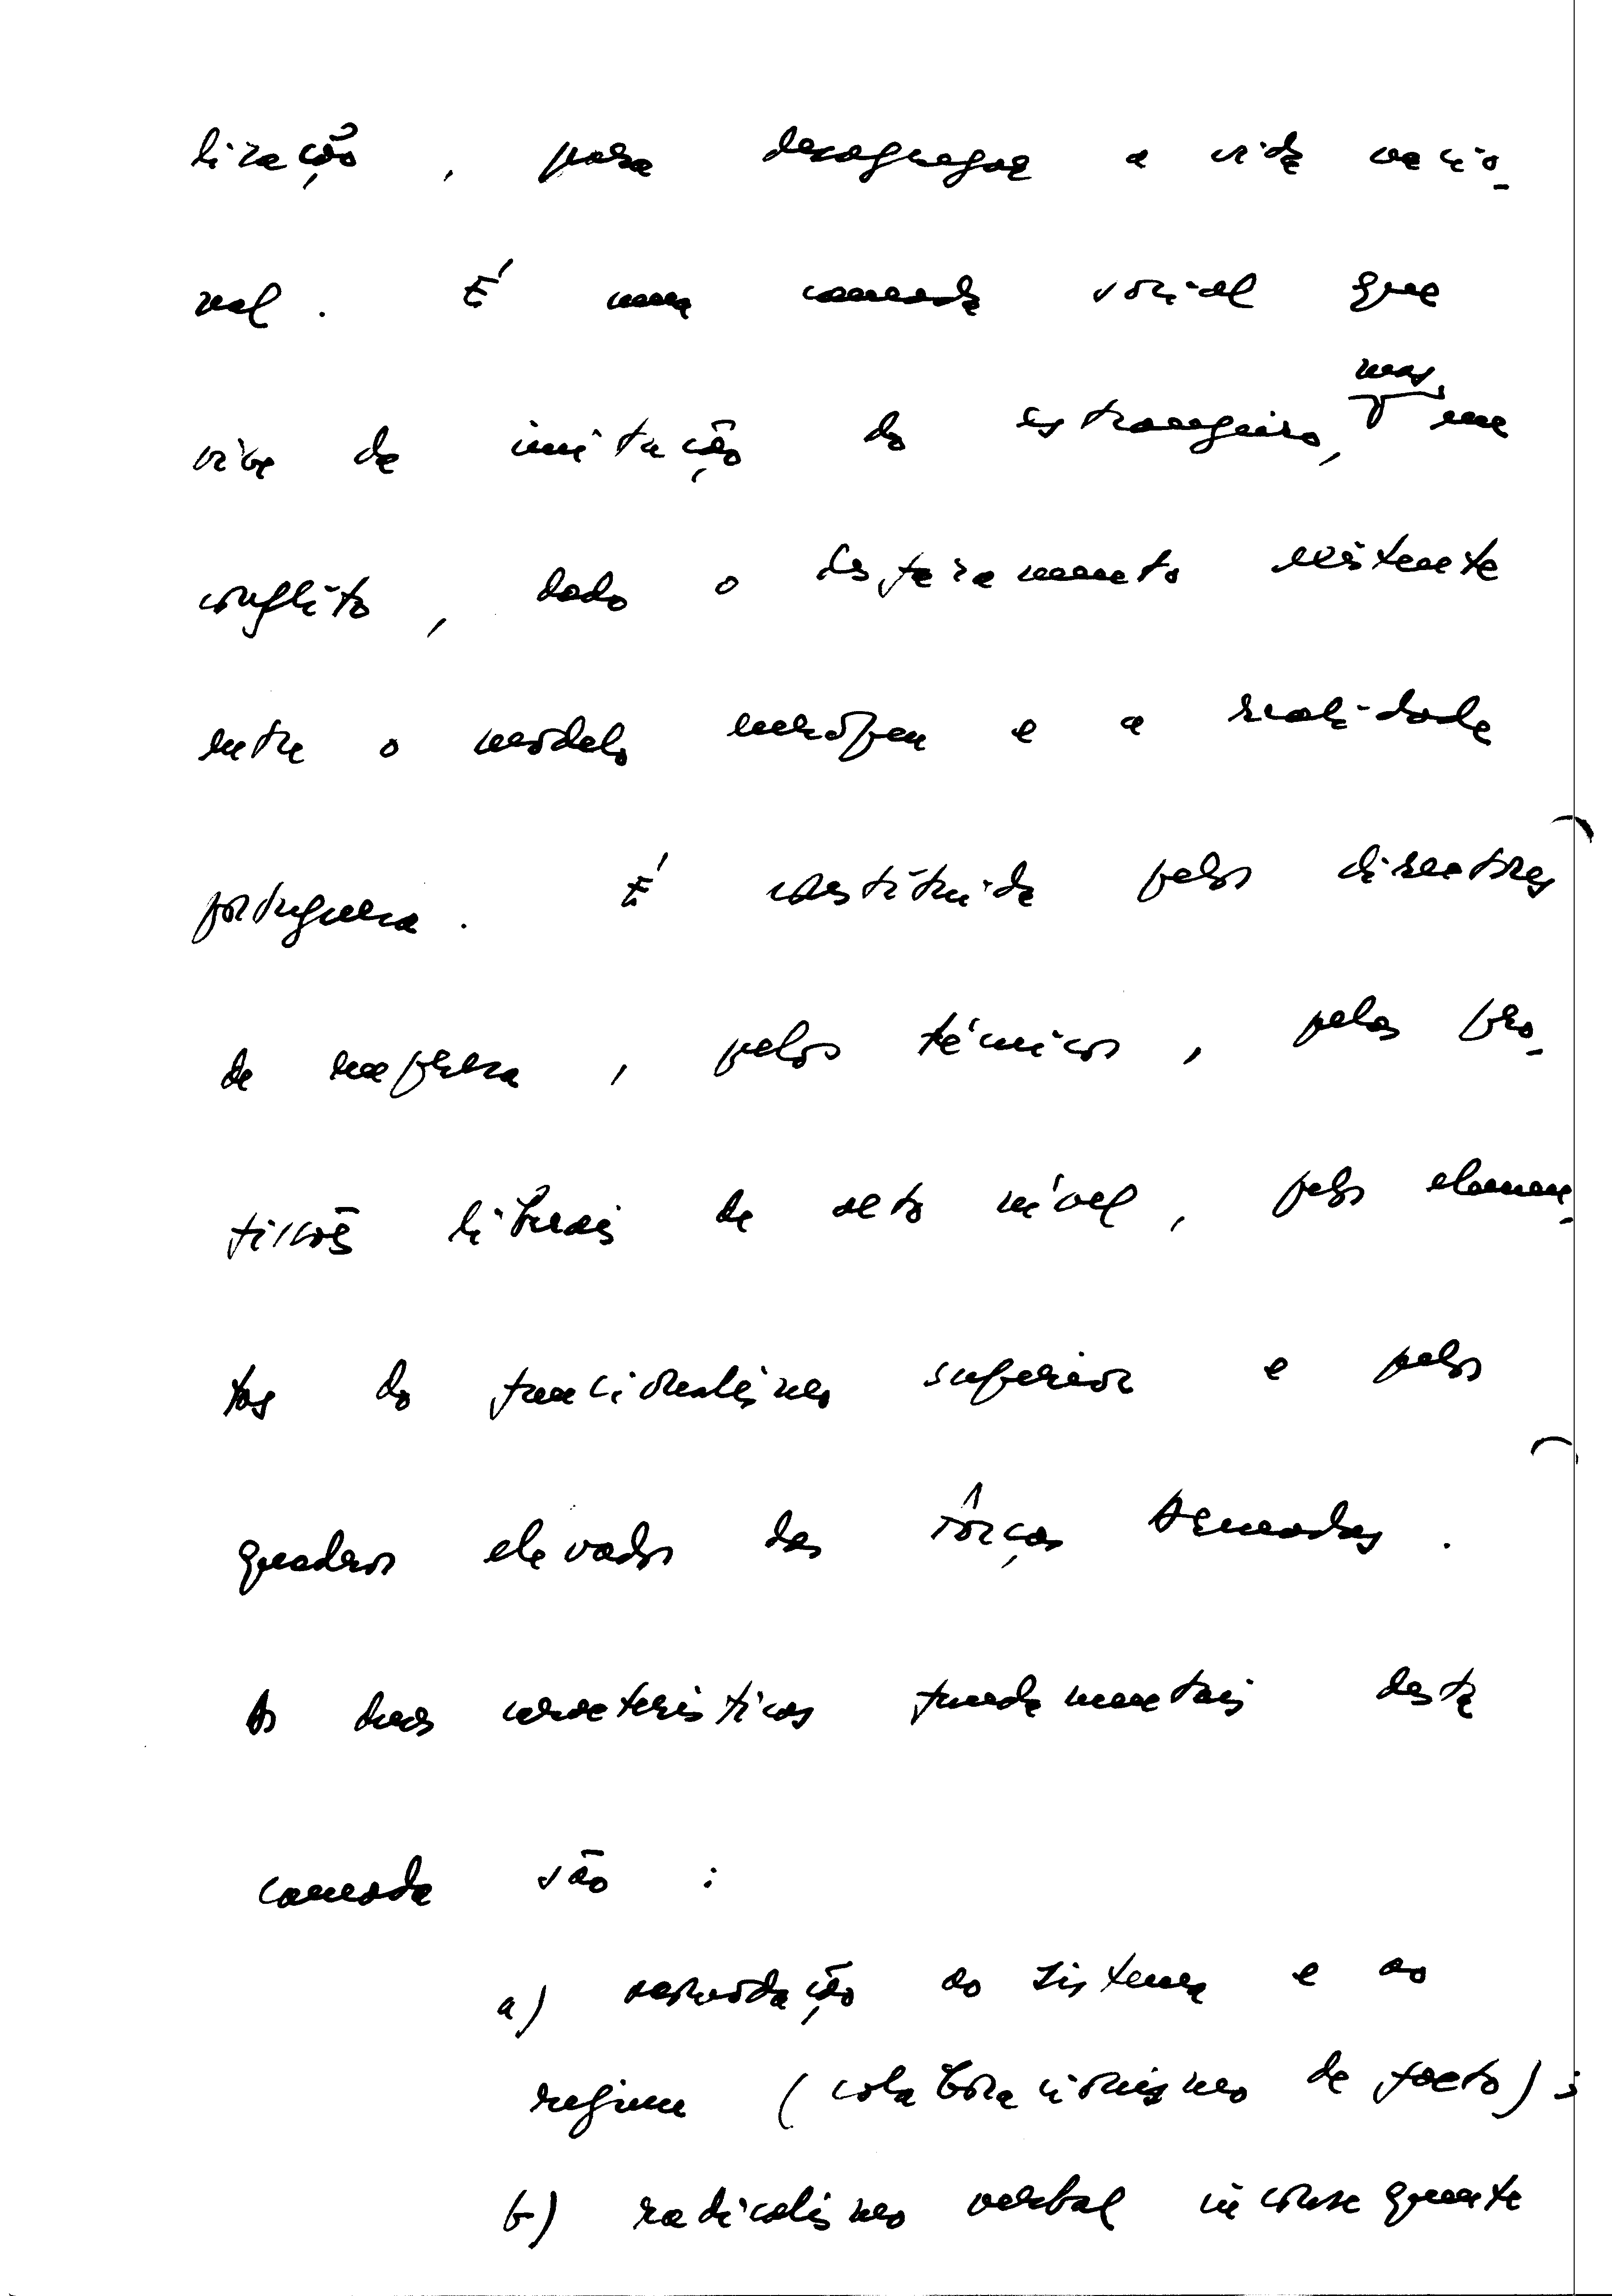 lização, para desagregar a vida nacio-
nal. É uma camada social que
vive da imitação do estrangeiro, mas em
conflito, dado o desfasamento existente
entre o modelo europeu e a realidade
portuguesa. É constituída pelos directores
de empresa, pelos técnicos, pelas pro-
fissões liberais de alto nível, pelos elemen-
tos do funcionalismo superior e pelos
quadros elevados das Fôrças Armadas.
As duas características fundamentais desta
camada são:
a) acomodação ao sistema e ao
regime (colaboracionismo de facto);
b) radicalismo verbal inconsequente